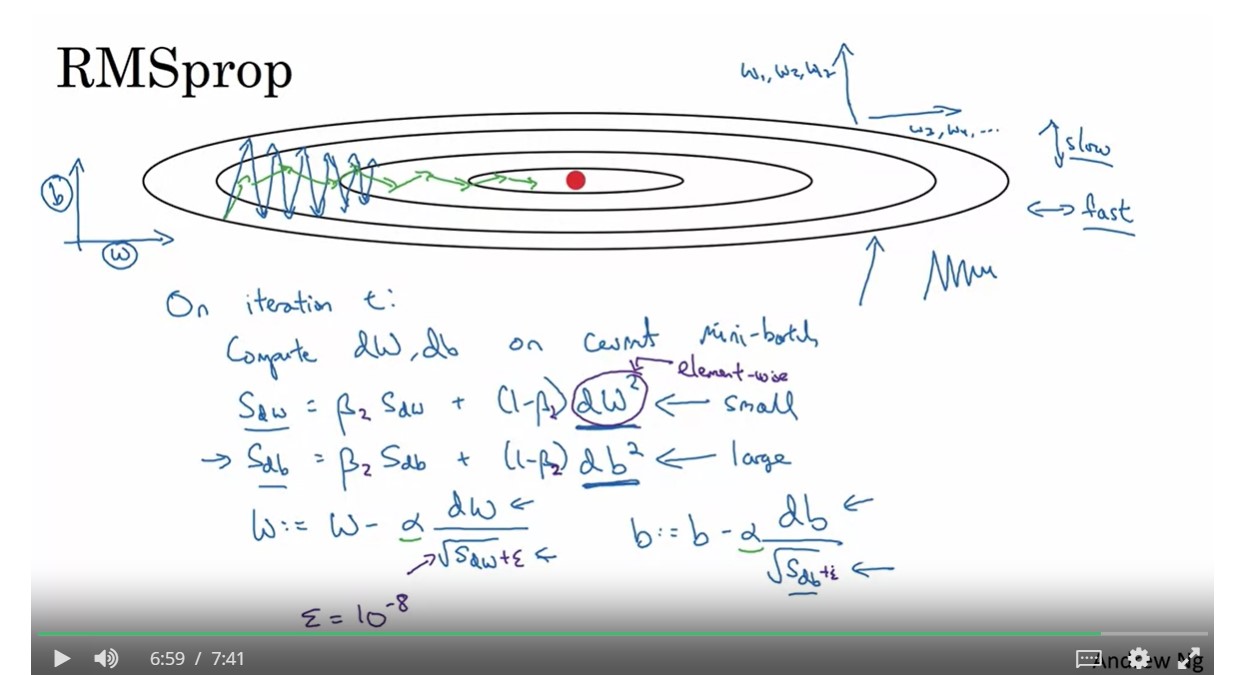 RMSprop
w₁, w₂, w₂
w₂, w₄, ...
slow
fast
b
w
On iteration t:
Compute dW, db on current mini-batch
element-wise
S_dw = β₂ S_dw + (1-β₂) dW² ← small
→ S_db = β₂ S_db + (1-β₂) db² ← large
W := W - α dW / √S_dw + ε ←
b := b - α db / √S_db + ε ←
ε = 10⁻⁸
6:59 / 7:41
Andrew Ng